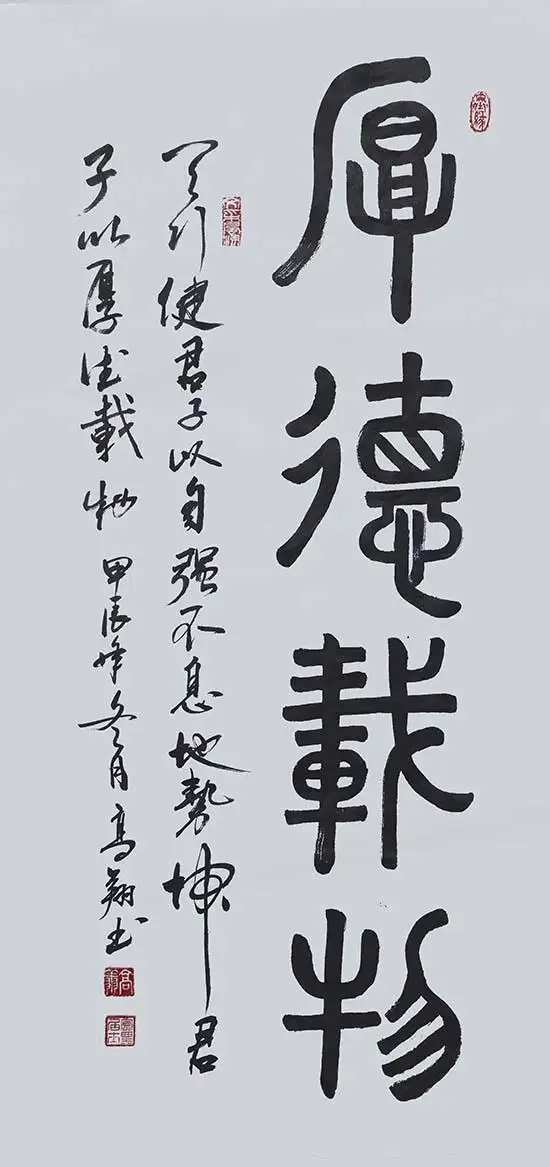 厚德載物
天行健君子以自强不息地勢坤君
子以厚德載物 甲辰年冬月高翔书
高翔